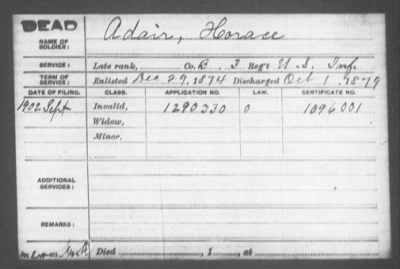 DEAD
NAME OF SOLDIER: Adair, Horace
SERVICE: Late rank, Co. B, 3 Reg't U. S. Inf.
TERM OF SERVICE: Enlisted Dec 29, 1874 Discharged Oct 1, 1879
DATE OF FILING. CLASS. APPLICATION NO. LAW. CERTIFICATE NO.
1902 Sept Invalid, 1290330 0 1096001
Widow,
Minor,
ADDITIONAL SERVICES:
REMARKS:
Died , 1 , at